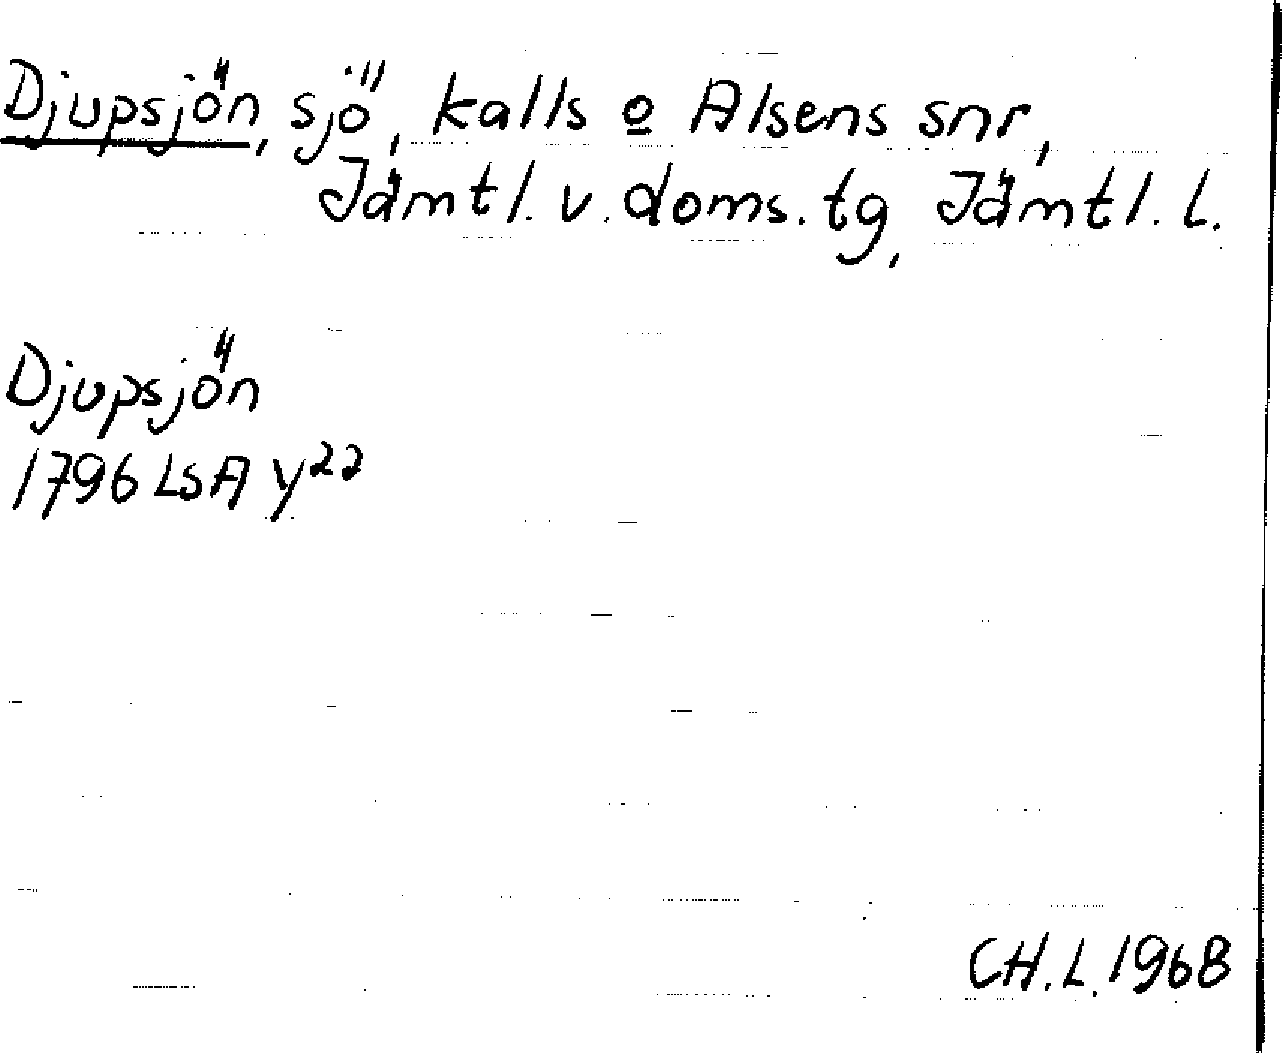 Djupsjön, sjö, kalls o Alsens snr,
Jämtl. v. doms. tg, Jämtl. l.
Djupsjön
1796 LSA Y22
CH.L. 1968